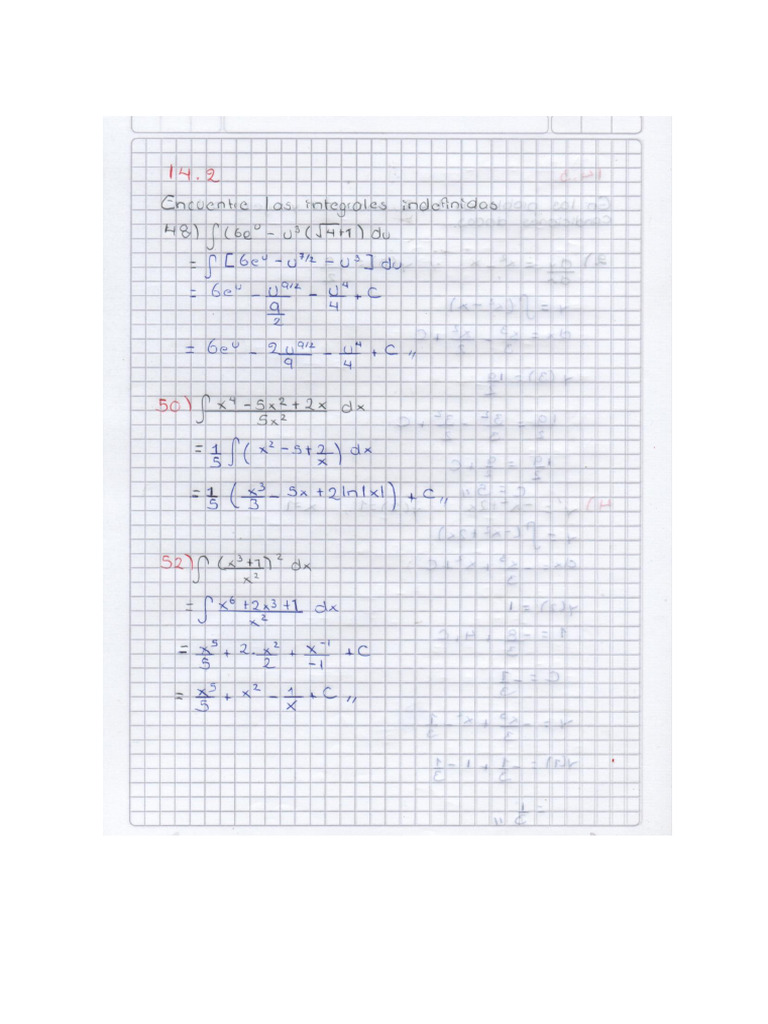 14.2
Encuentre las integrales indefinidas
48) ∫(6e^u − u^3(√4+1) du
= ∫[6e^u − u^7/2 − u^3] du
= 6e^u − u^9/2/(9/2) − u^4/4 + C
= 6e^u − 2u^9/2/9 − u^4/4 + C //
50) ∫ (x^4 − 5x^2 + 2x)/5x^2 dx
= 1/5 ∫(x^2 − 5 + 2/x) dx
= 1/5 (x^3/3 − 5x + 2ln|x|) + C //
52) ∫ (x^3+1)^2/x^2 dx
= ∫ (x^6 + 2x^3 + 1)/x^2 dx
= x^5/5 + 2·x^2/2 + x^-1/-1 + C
= x^5/5 + x^2 − 1/x + C //